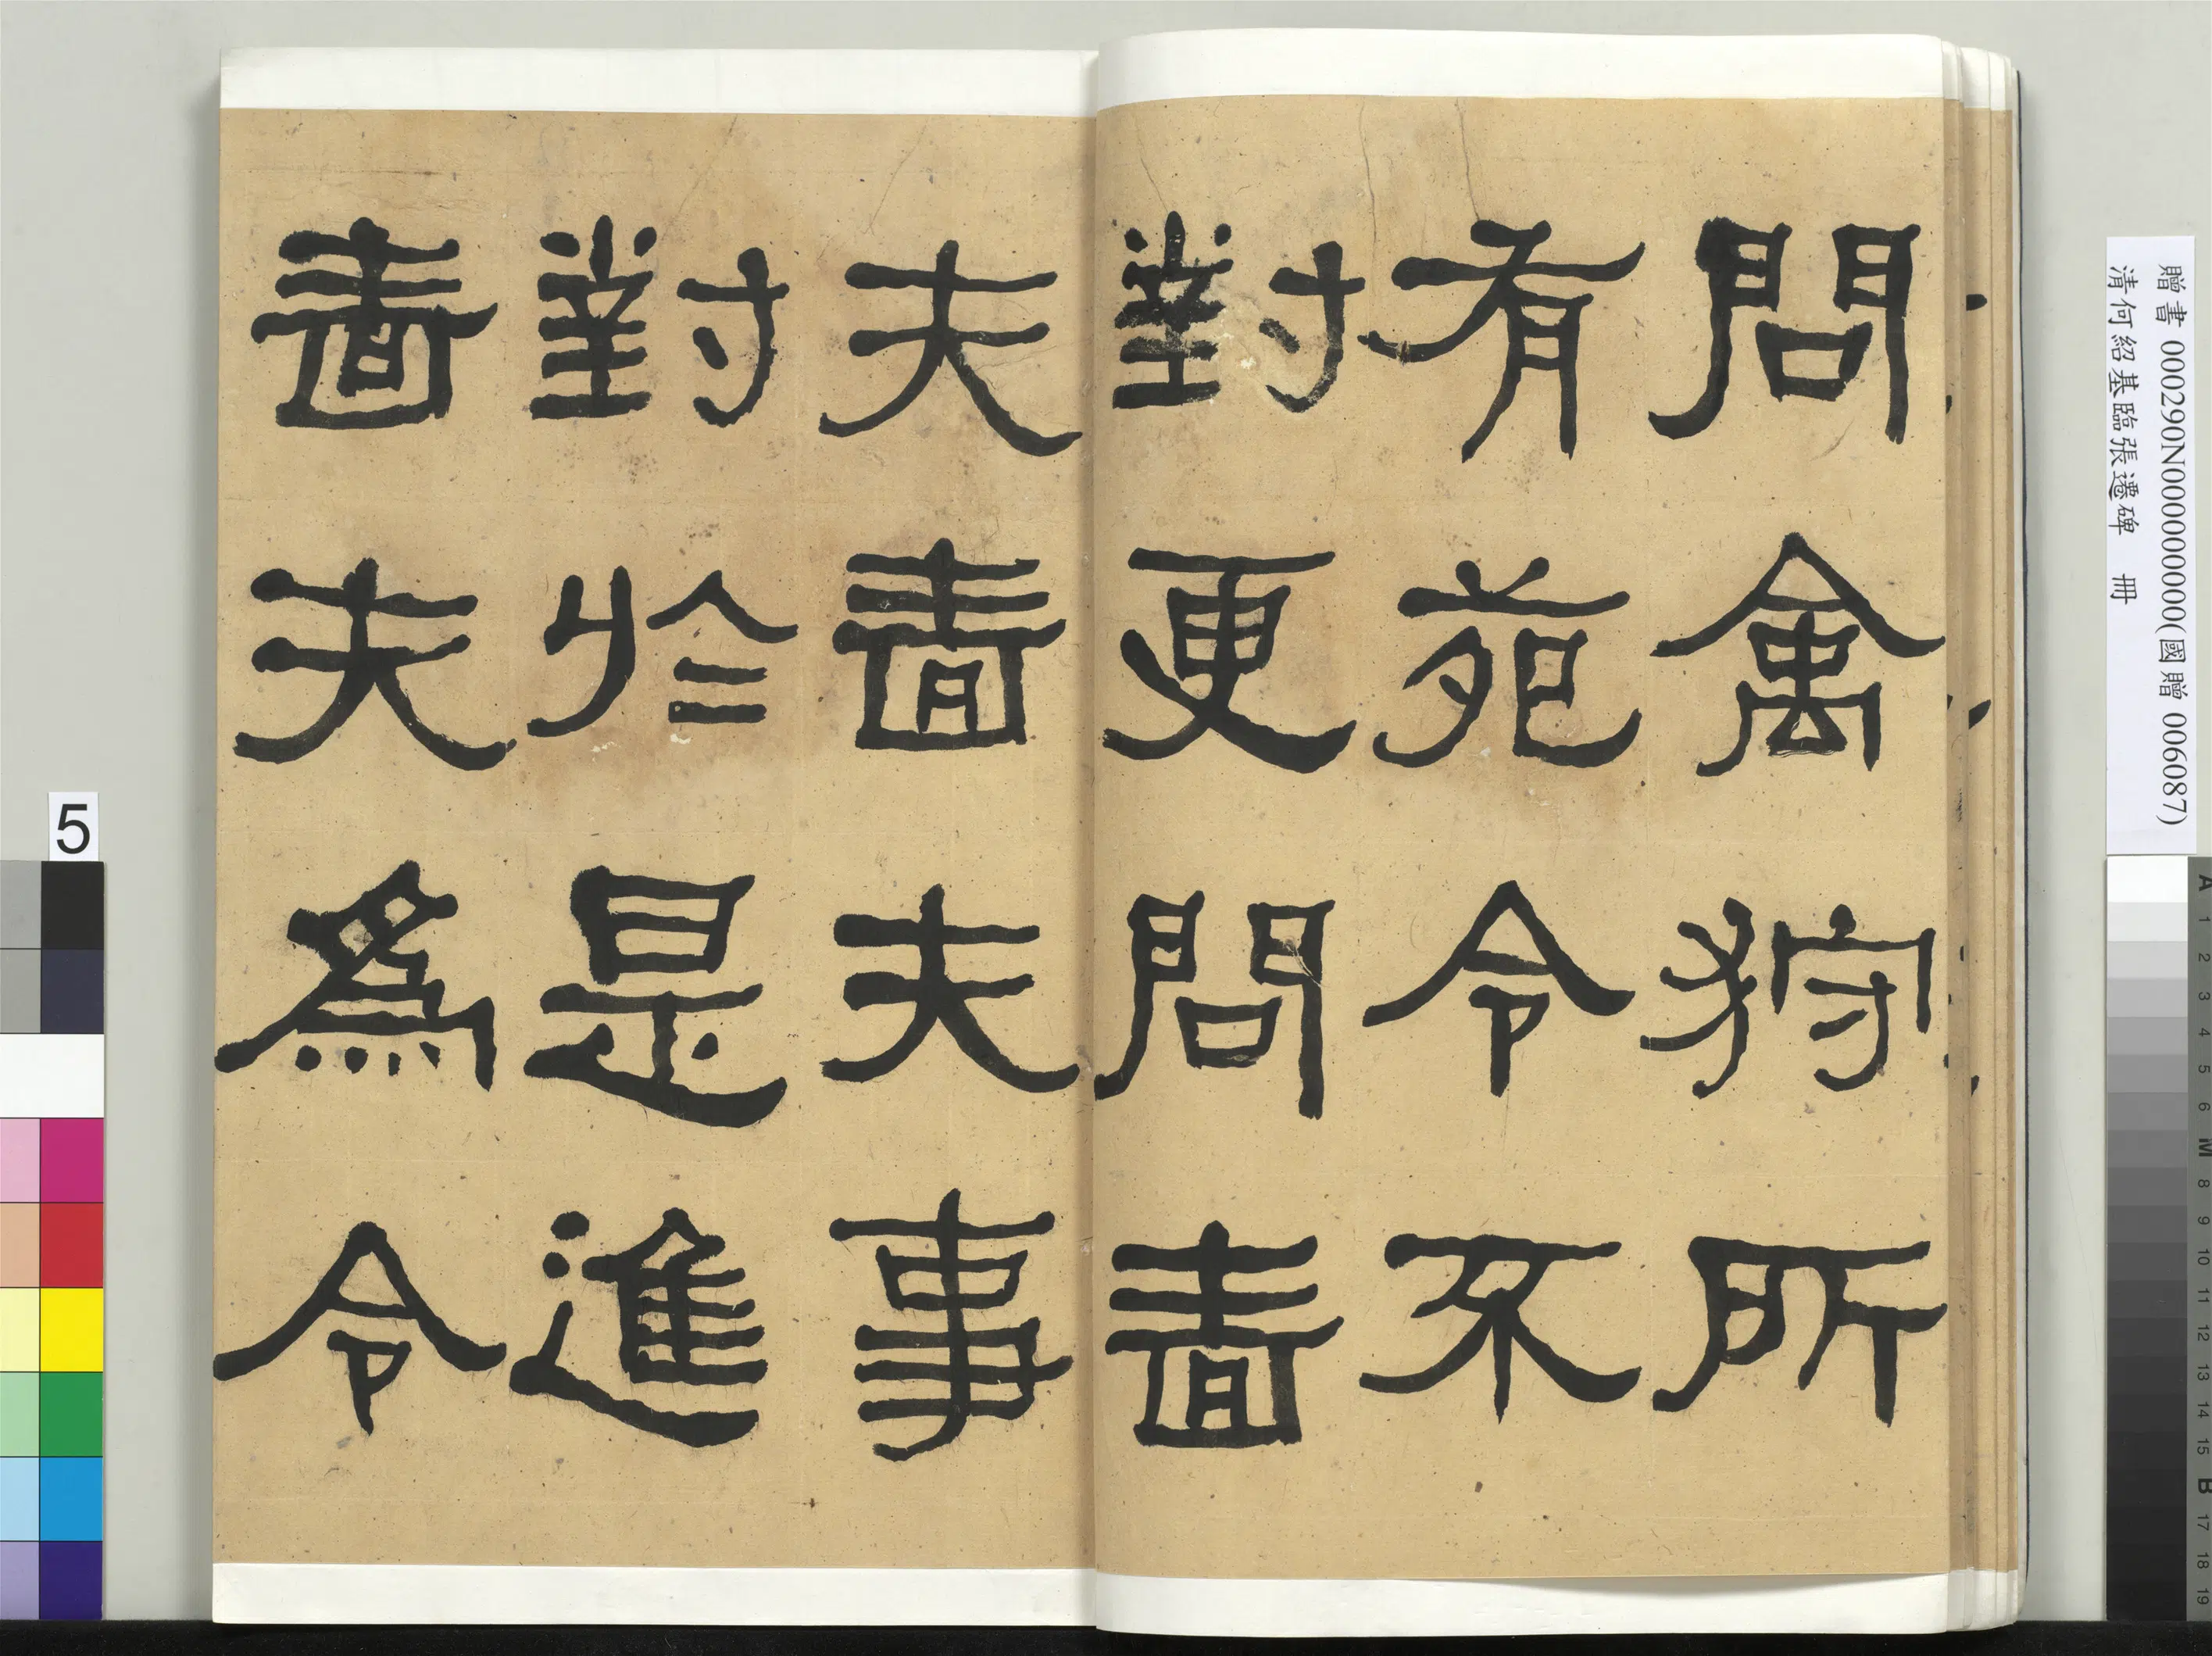 問禽狩所
有苑令不
對更問嗇
夫嗇夫事
對於是進
嗇夫爲令
贈書 000290N000000000(國贈 006087)
清何紹基臨張遷碑 冊
5
A 1 2 3 4 5 6 M 8 9 10 11 12 13 14 15 B 17 18 19